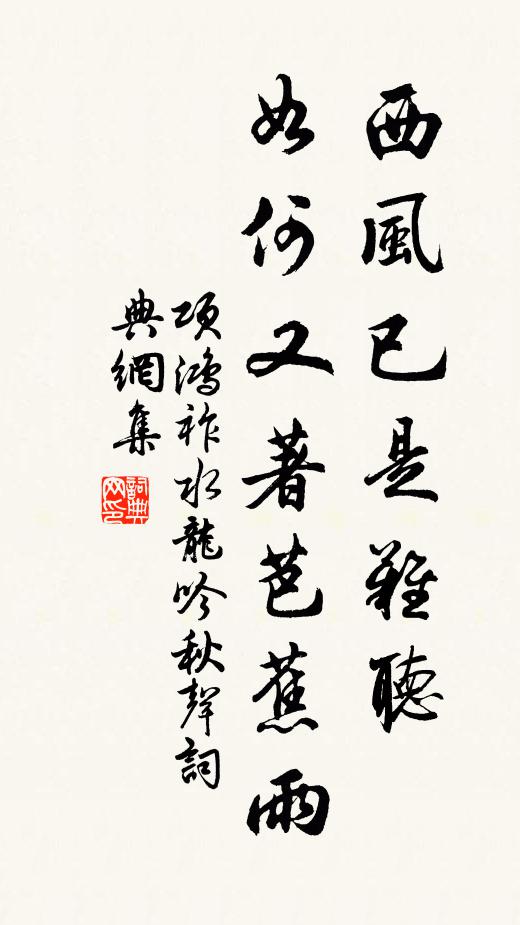 西風已是難聽
如何又著芭蕉雨
項鴻祚水龍吟秋聲詞
典網集
詞典
网印